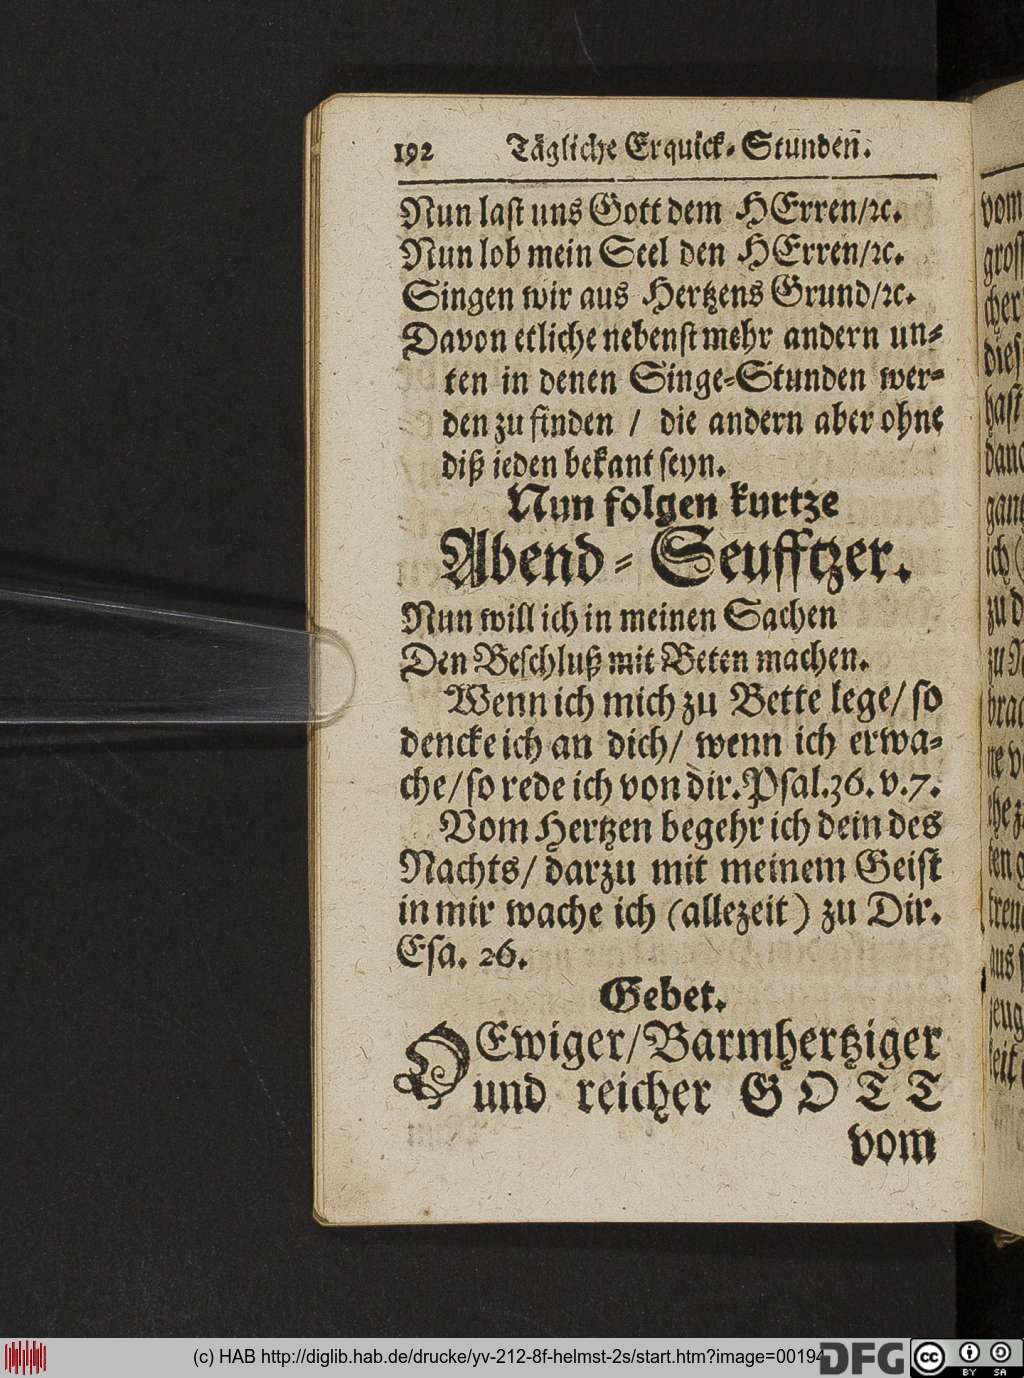 192 Tägliche Erquick-Stunden.
Nun last uns Gott dem HErren/ꝛc.
Nun lob mein Seel den HErren/ꝛc.
Singen wir aus Hertzens Grund/ꝛc.
Davon etliche nebenst mehr andern un-
ten in denen Singe-Stunden wer-
den zu finden / die andern aber ohne
diß ieden bekant seyn.
Nun folgen kurtze
Abend-Seufftzer.
Nun will ich in meinen Sachen
Den Beschluß mit Beten machen.
Wenn ich mich zu Bette lege/ so
dencke ich an dich/ wenn ich erwa-
che/ so rede ich von dir. Psal. 36. v. 7.
Vom Hertzen begehr ich dein des
Nachts/ darzu mit meinem Geist
in mir wache ich (allezeit) zu Dir.
Esa. 26.
Gebet.
O Ewiger/ Barmhertziger
und reicher GOTT
vom
vom
(c) HAB http://diglib.hab.de/drucke/yv-212-8f-helmst-2s/start.htm?image=00194
DFG
cc BY SA